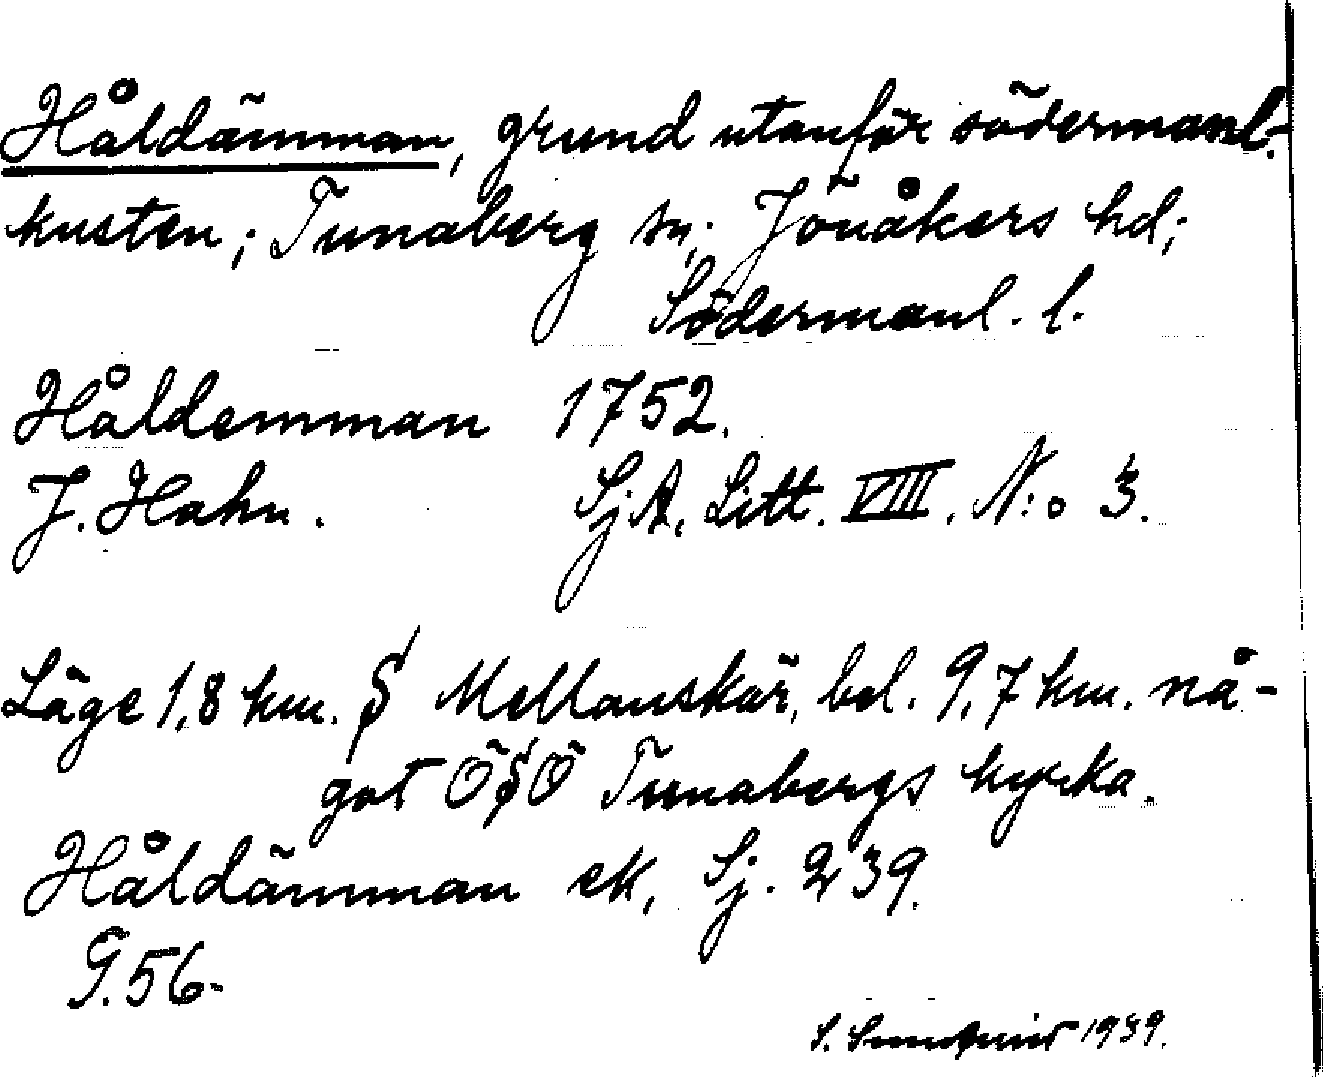 Håldämman, grund utanför södermanl.-
kusten; Tunaberg sn; Jönåkers hd;
Södermanl. l.
Håldemman 1752.
J. Hahn. SjA, Litt. VIII. N:o 3.
Läge 1,8 km. S Mellanskär, bel. 9,7 km. nå-
got ÖSÖ Tunabergs kyrka.
Håldämman ek, Sj. 239.
G.56.
S. Sundqvist 1939.